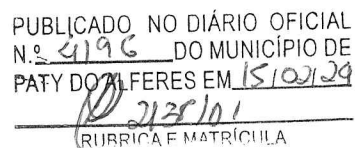 PUBLICADO NO DIÁRIO OFICIAL
N.º 4196 DO MUNICÍPIO DE
PATY DO ALFERES EM 15/02/24
2135/01
RUBRICA E MATRÍCULA